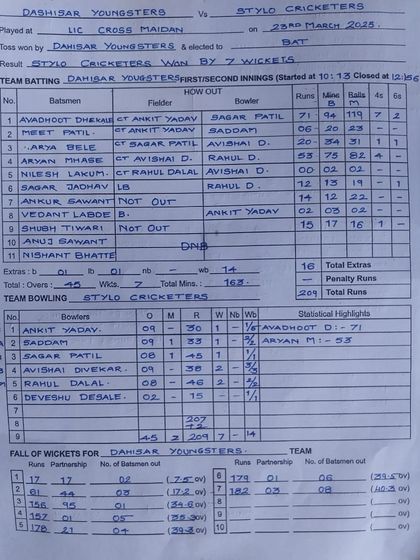 DASHISAR YOUNGSTERS Vs STYLO CRICKETERS
Played at LIC CROSS MAIDAN on 23RD MARCH 2025.
Toss won by DAHISAR YOUNGSTERS & elected to BAT
Result STYLO CRICKETERS WON BY 7 WICKETS.
TEAM BATTING DAHISAR YOUGSTERS FIRST/SECOND INNINGS (Started at 10:13 Closed at 12:56
HOW OUT
No. Batsmen Fielder Bowler Runs Mins B Balls M 4s 6s
1 AVADHOOT DHEKALE CT ANKIT YADAV SAGAR PATIL 71 94 119 7 2
2 MEET PATIL. CT ANKIT YADAV SADDAM 06 20 23 - -
3 ARYA BELE CT SAGAR PATIL AVISHAI D. 20 34 31 1 1
4 ARYAN MHASE CT AVISHAI D. RAHUL D. 53 75 82 4 -
5 NILESH LAKUM. CT RAHUL DALAL AVISHAI D. 00 02 02 - -
6 SAGAR JADHAV LB RAHUL D. 12 13 19 - 1
7 ANKUR SAWANT NOT OUT 14 12 22 - -
8 VEDANT LABDE B. ANKIT YADAV 02 03 02 - -
9 SHUBH TIWARI NOT OUT 15 17 16 1 -
10 ANUJ SAWANT DNB
11 NISHANT BHATTE
Extras : b 01 lb 01 nb - wb 14 16 Total Extras
- Penalty Runs
Total : Overs : 45 Wkts. 7 Total Mins.: 163. 209 Total Runs
TEAM BOWLING STYLO CRICKETERS
No. Bowlers O M R W Nb Wb Statistical Highlights
1 ANKIT YADAV. 09 - 30 1 - AVADHOOT D:- 71
2 SADDAM 09 1 33 1 - ARYAN M:- 53
3 SAGAR PATIL 08 1 45 1 1/1
4 AVISHAI DIVEKAR. 09 - 38 2 -
5 RAHUL DALAL. 08 - 46 2 - 2/2
6 DEVESHU DESALE. 02 - 15 - - 1/1
7
8 207 +2
9 45 2 209 7 - 14
FALL OF WICKETS FOR DAHISAR YOUNGSTERS. TEAM
Runs Partnership No. of Batsmen out Runs Partnership No. of Batsmen out
1 17 17 02 (7.5 ov) 6 179 01 06 (39.5 ov)
2 61 44 03 (17.2 ov) 7 182 03 08 (40.3 ov)
3 156 95 01 (34.6 ov) 8 ov)
4 157 01 05 (35.3 ov) 9 ov)
5 178 21 04 (39.3 ov) 10 ov)